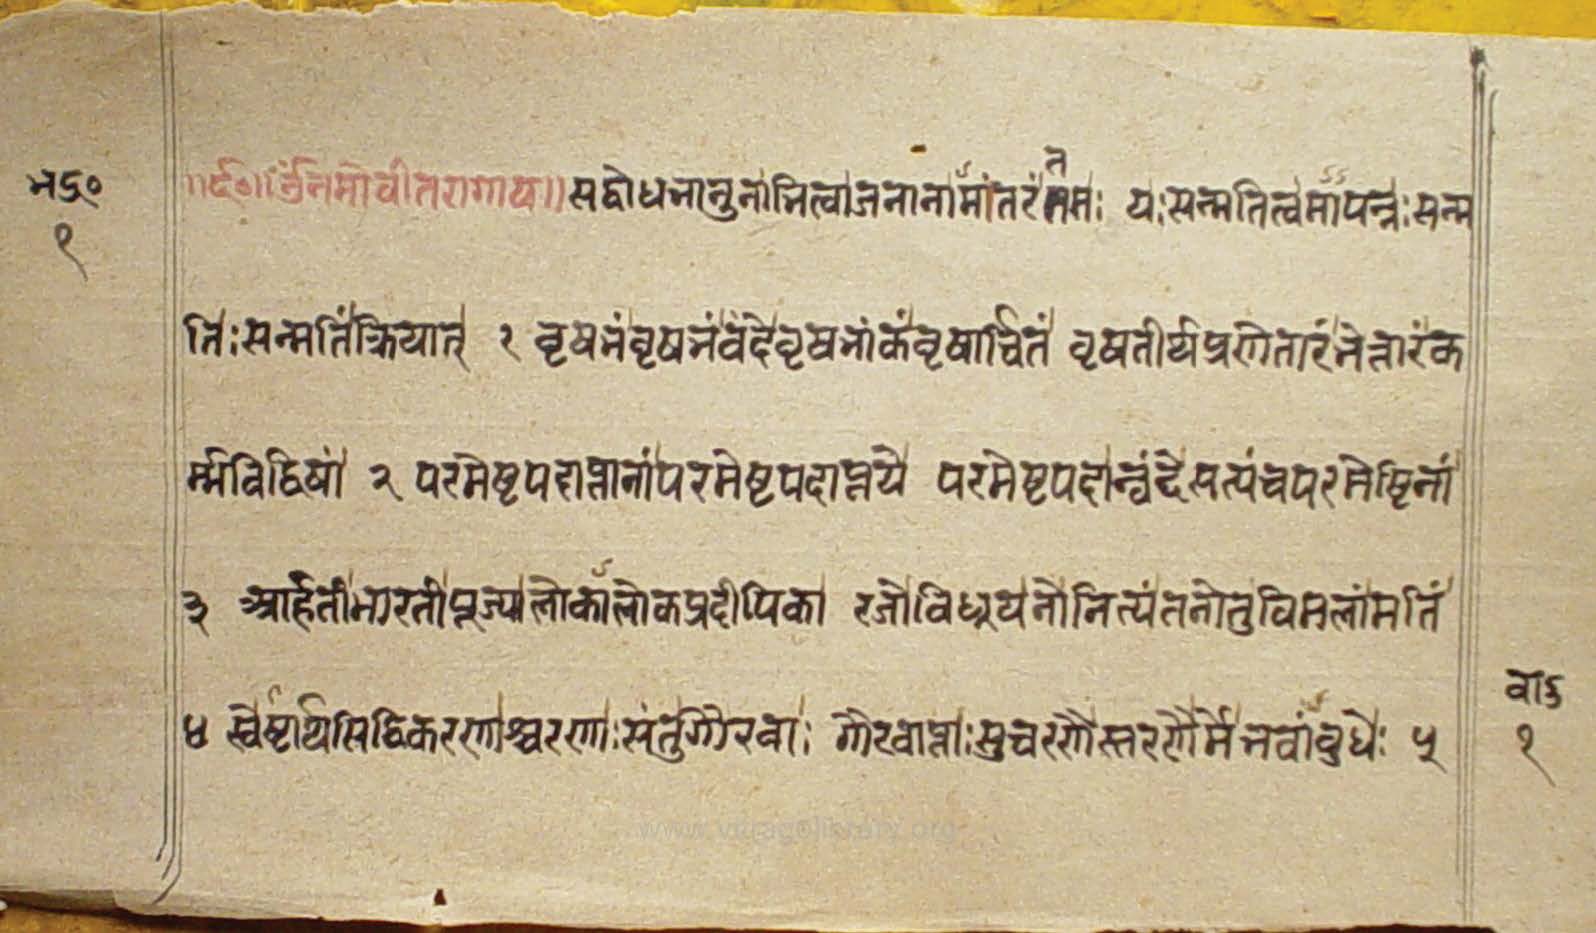 भ८०
१
॥ र्द०॥ ॐ नमो वीतरागाय॥ सद्बोधभानुनाभित्वाजनानामांतरंतमः यःसन्मतित्वमापन्नःसन्म
तिःसन्मतिंक्रियात् १ वृषभंवृषभंवंदेवृषभांकंवृषार्चितं वृषतीर्थप्रणेतारंभेत्तारंक
र्म्मविद्विषां २ परमेष्टपदाप्तानांपरमेष्टपदाप्तये परमेष्टपदान्वंदेसत्पंचपरमेष्टिनां
३ आर्हतीभारतीपूज्यालोकालोकप्रदीपिका रजोविधूयनोनित्यंतनोतुविमलांमतिं
४ स्वेष्टार्थसिद्धिकरणाश्चरणाःसंतुगौरवाः गौरवाप्ताःसुचरणैस्तरणैर्मेभवांबुधेः ५
वा८
१
www.vitraglibrary.org